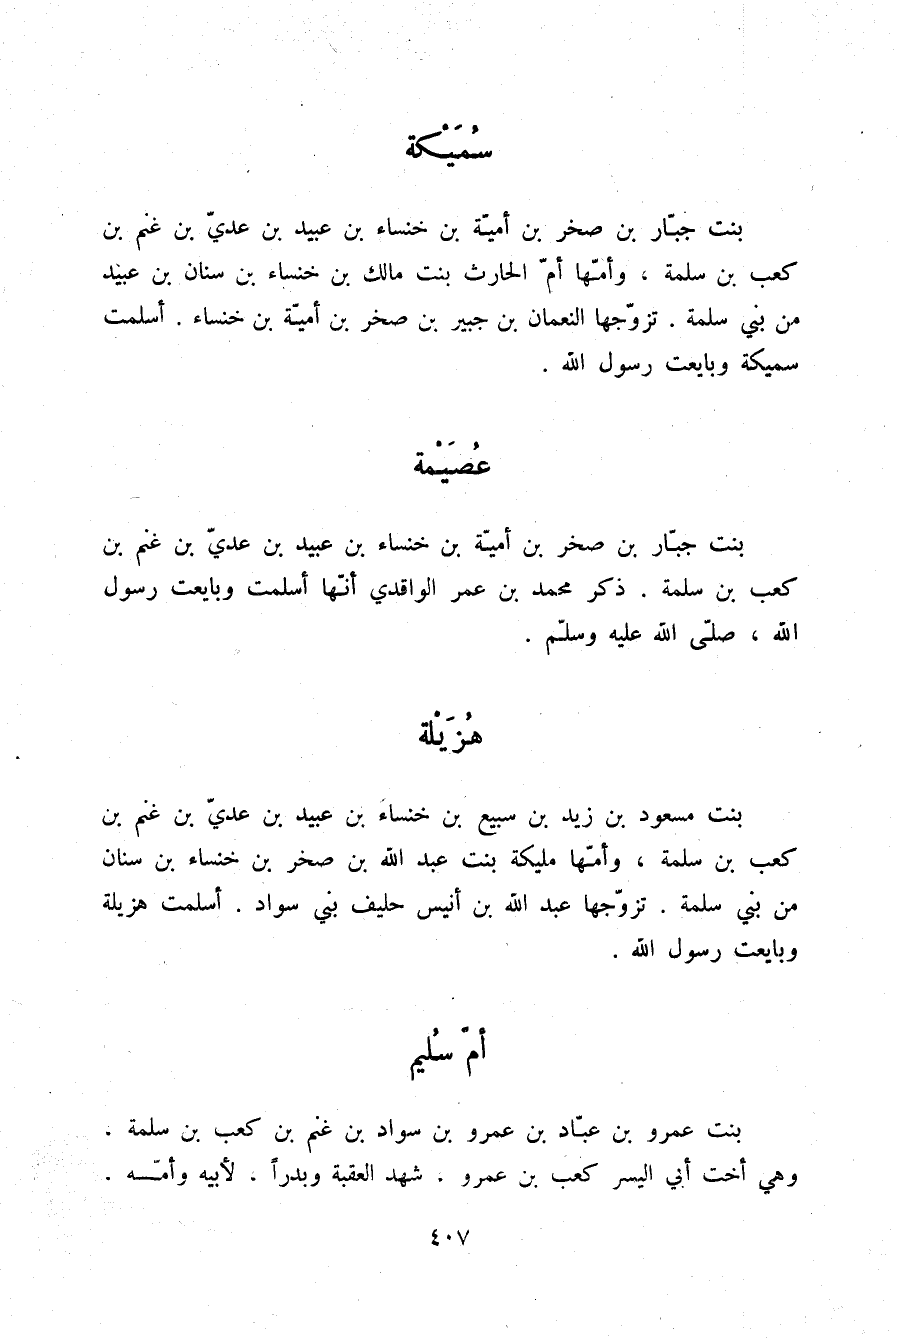 سُمَيْكة
بنت جبّار بن صخر بن أميّة بن خنساء بن عبيد بن عديّ بن غنم بن
كعب بن سلمة ، وأمّها أمّ الحارث بنت مالك بن خنساء بن سنان بن عبيد
من بني سلمة . تزوّجها النعمان بن جبير بن صخر بن أميّة بن خنساء . أسلمت
سميكة وبايعت رسول الله .
عُصَيْمة
بنت جبّار بن صخر بن أميّة بن خنساء بن عبيد بن عديّ بن غنم بن
كعب بن سلمة . ذكر محمد بن عمر الواقدي أنّها أسلمت وبايعت رسول
الله ، صلّى الله عليه وسلّم .
هُزَيْلة
بنت مسعود بن زيد بن سبيع بن خنساء بن عبيد بن عديّ بن غنم بن
كعب بن سلمة ، وأمّها مليكة بنت عبد الله بن صخر بن خنساء بن سنان
من بني سلمة . تزوّجها عبد الله بن أنيس حليف بني سواد . أسلمت هزيلة
وبايعت رسول الله .
أمّ سُليم
بنت عمرو بن عبّاد بن عمرو بن سواد بن غنم بن كعب بن سلمة .
وهي أخت أبي اليسر كعب بن عمرو . شهد العقبة وبدراً . لأبيه وأمّه .
٤٠٧